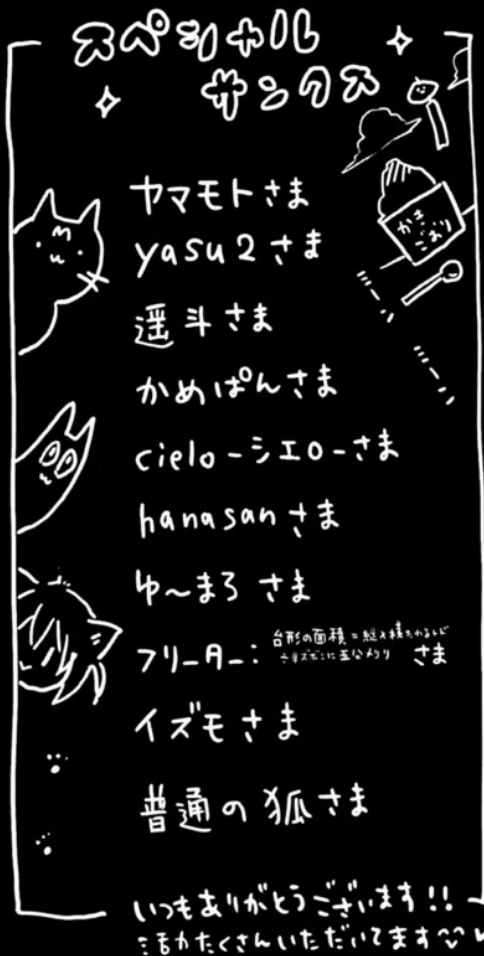 スペシャル
サンクス
かき
ごおり
ミーン
ミーン
ヤマモトさま
yasu2さま
遥斗さま
かめぱんさま
cielo-シエロ-さま
hanasanさま
ゆ〜まろ さま
フリーター:台形の面積=縦×横
さま
イズモさま
普通の狐さま
いつもありがとうございます!!
活力たくさんいただいてます